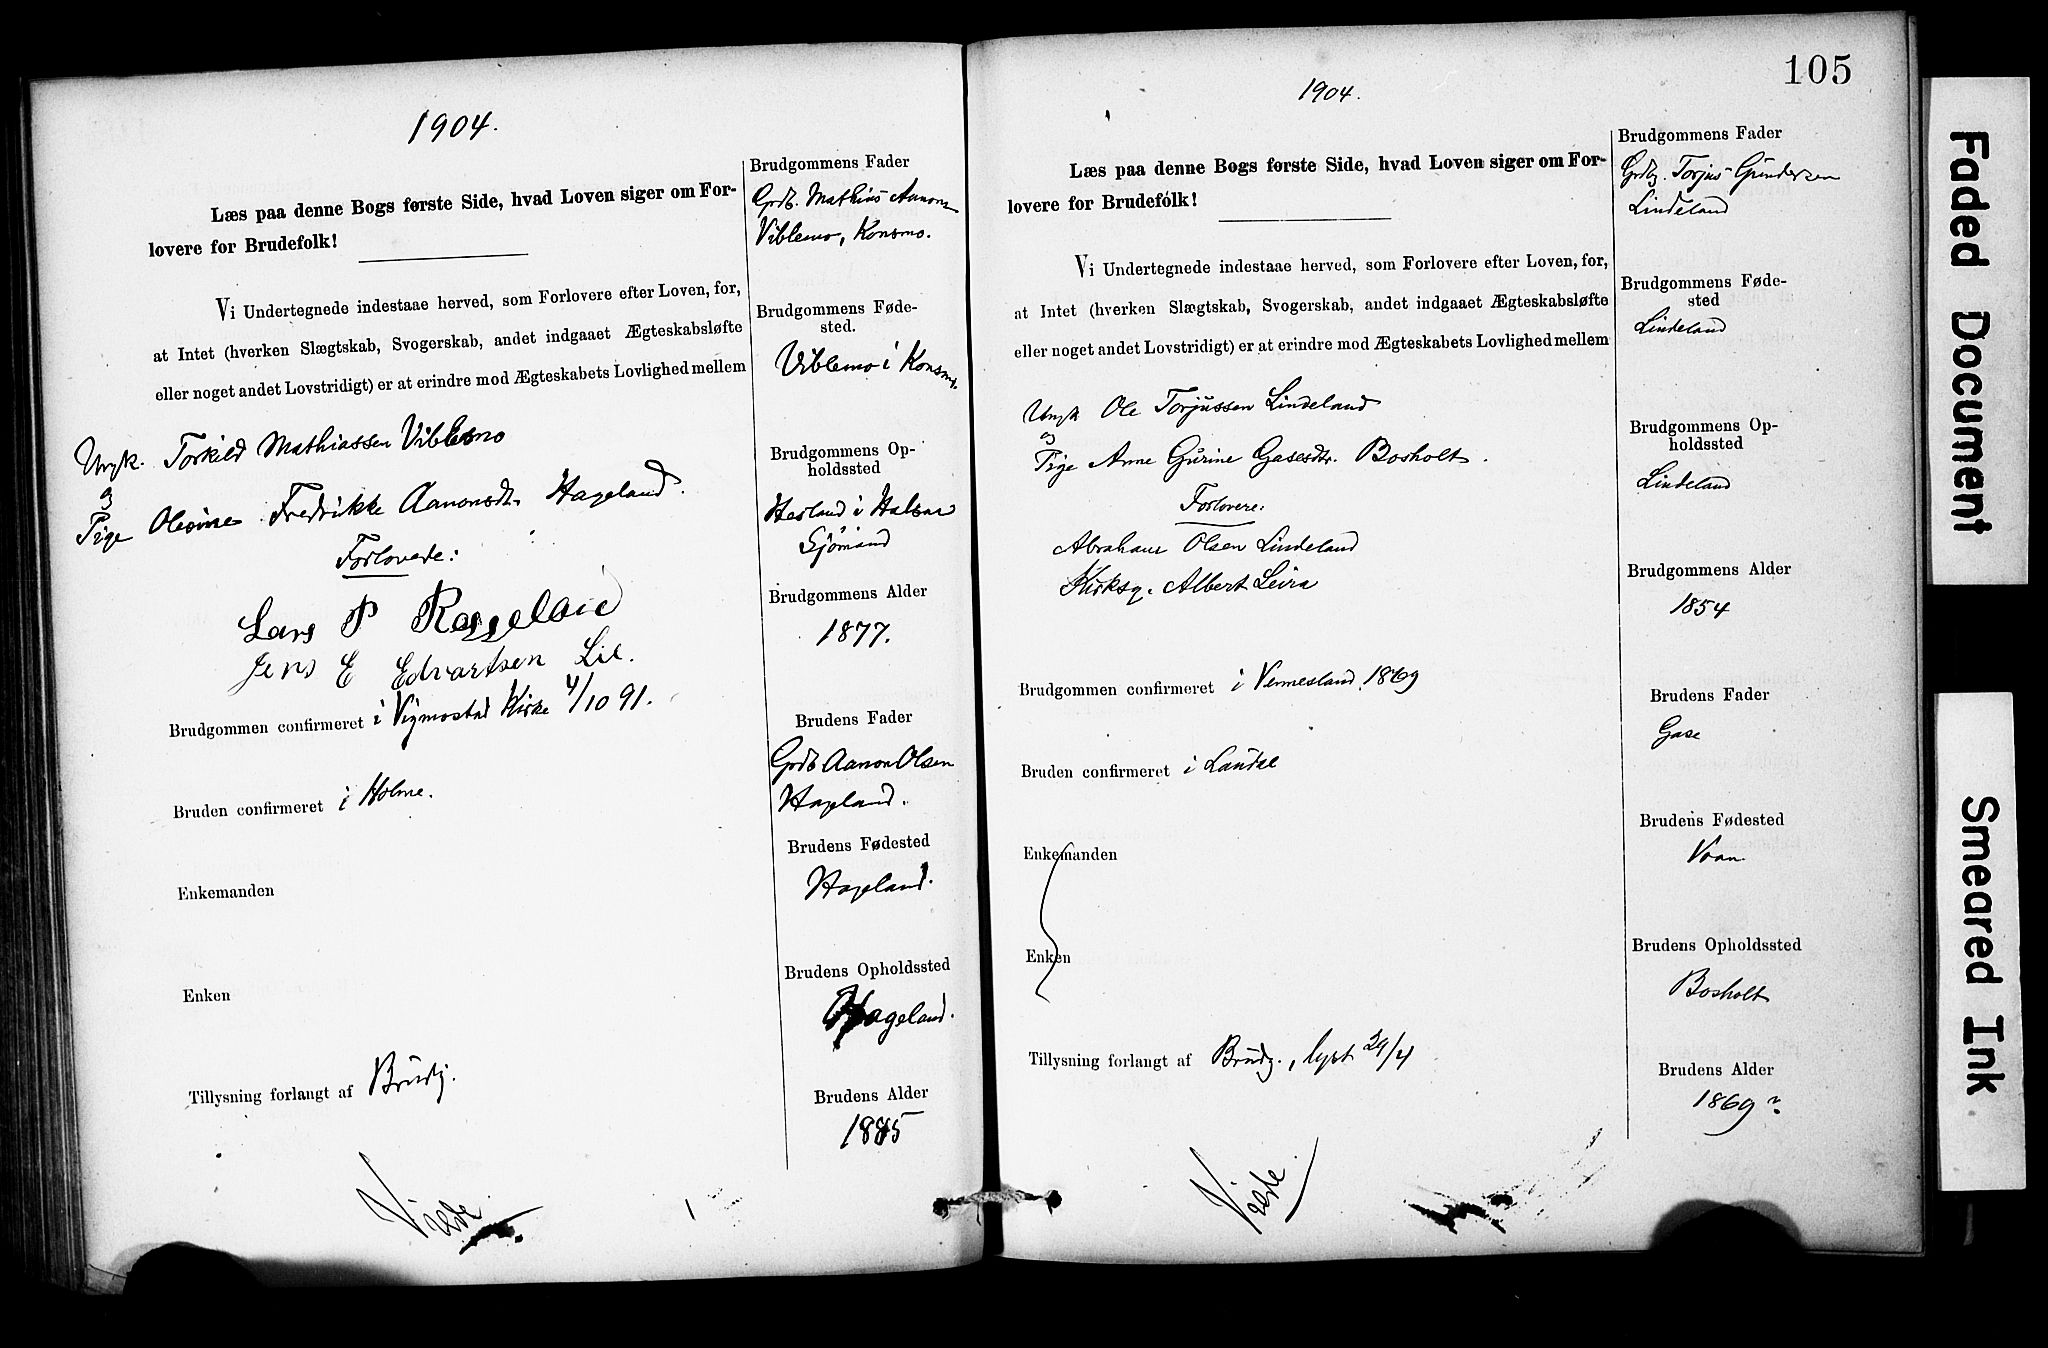 1904.
Læs paa denne Bogs første Side, hvad Loven siger om For-
lovere for Brudefolk!
Vi Undertegnede indestaae herved, som Forlovere efter Loven, for,
at Intet (hverken Slægtskab, Svogerskab, andet indgaaet Ægteskabsløfte
eller noget andet Lovstridigt) er at erindre mod Ægteskabets Lovlighed mellem
Ungk. Torkild Mathiassen Viblemo
og
Pige Olesine Fredrikke Aanonsdt. Hageland.
Forlovere:
Lars P
Jens E Edvartsen Lie.
Brudgommen confirmeret i Vigmostad Kirke 4/10 91.
Bruden confirmeret i Holme.
Enkemanden
Enken
Tillysning forlangt af Brudg.
Brudgommens Fader
Grdb. Mathias Aanons
Viblemo, Konsmo.
Brudgommens Føde-
sted.
Viblemo i Konsmo.
Brudgommens Op-
holdssted
i Halsaa
Sjømand
Brudgommens Alder
1877.
Brudens Fader
Grdb Aanon Olsen
Hageland.
Brudens Fødested
Hageland.
Brudens Opholdssted
Hageland.
Brudens Alder
1885
105
1904.
Læs paa denne Bogs første Side, hvad Loven siger om For-
lovere for Brudefolk!
Vi Undertegnede indestaae herved, som Forlovere efter Loven, for,
at Intet (hverken Slægtskab, Svogerskab, andet indgaaet Ægteskabsløfte
eller noget andet Lovstridigt) er at erindre mod Ægteskabets Lovlighed mellem
Ungk Ole Torjussen Lindeland
og
Pige Anne Gurine Gasesdtr. Bosholt.
Forlovere:
Abraham Olsen Lindeland
Kirksg. Albert Leira
Brudgommen confirmeret i Vennesland 1869
Bruden confirmeret i Laudal
Enkemanden
Enken
Tillysning forlangt af Brudg., lyst 24/4
Brudgommens Fader
Grdbg. Torjus Gundersen
Lindeland
Brudgommens Føde-
sted
Lindeland
Brudgommens Op-
holdssted
Lindeland
Brudgommens Alder
1854
Brudens Fader
Gase
Brudens Fødested
Brudens Opholdssted
Bosholt
Brudens Alder
1869?
Faded Document
Smeared Ink